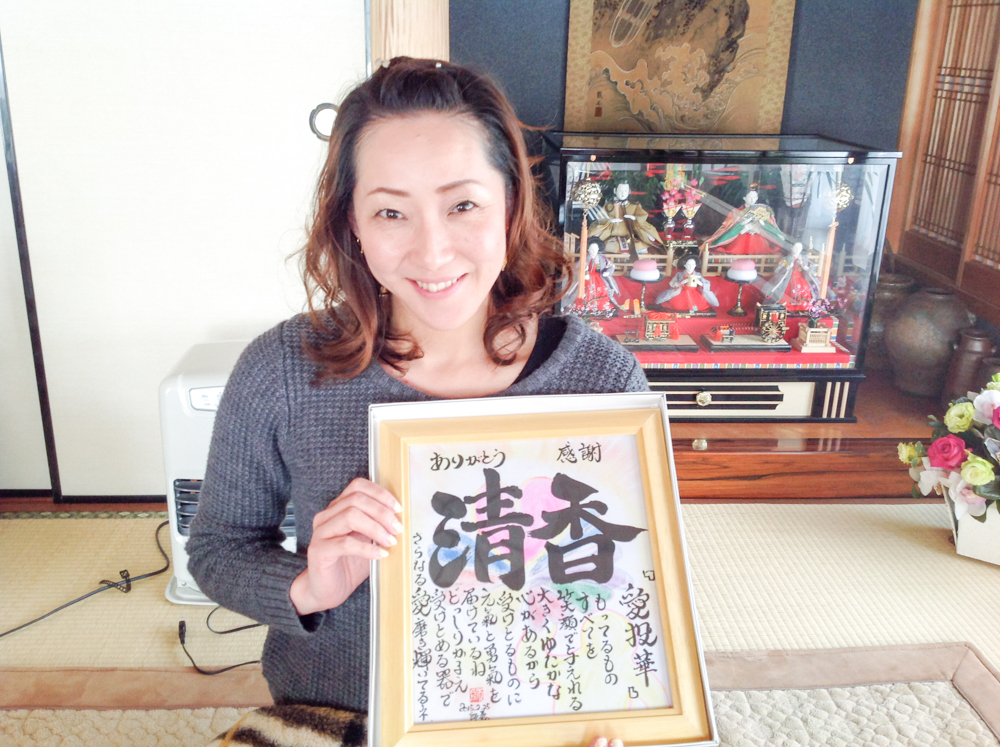 ありがとう 感謝
清香
もってるもの
すべてを
笑顔で与えれる
大きくゆたかな
心があるから
受けとるものに
元氣と勇氣を
届けているね
どっしりかまえ
受けとめる器で
さらなる愛磨き輝いてるネ